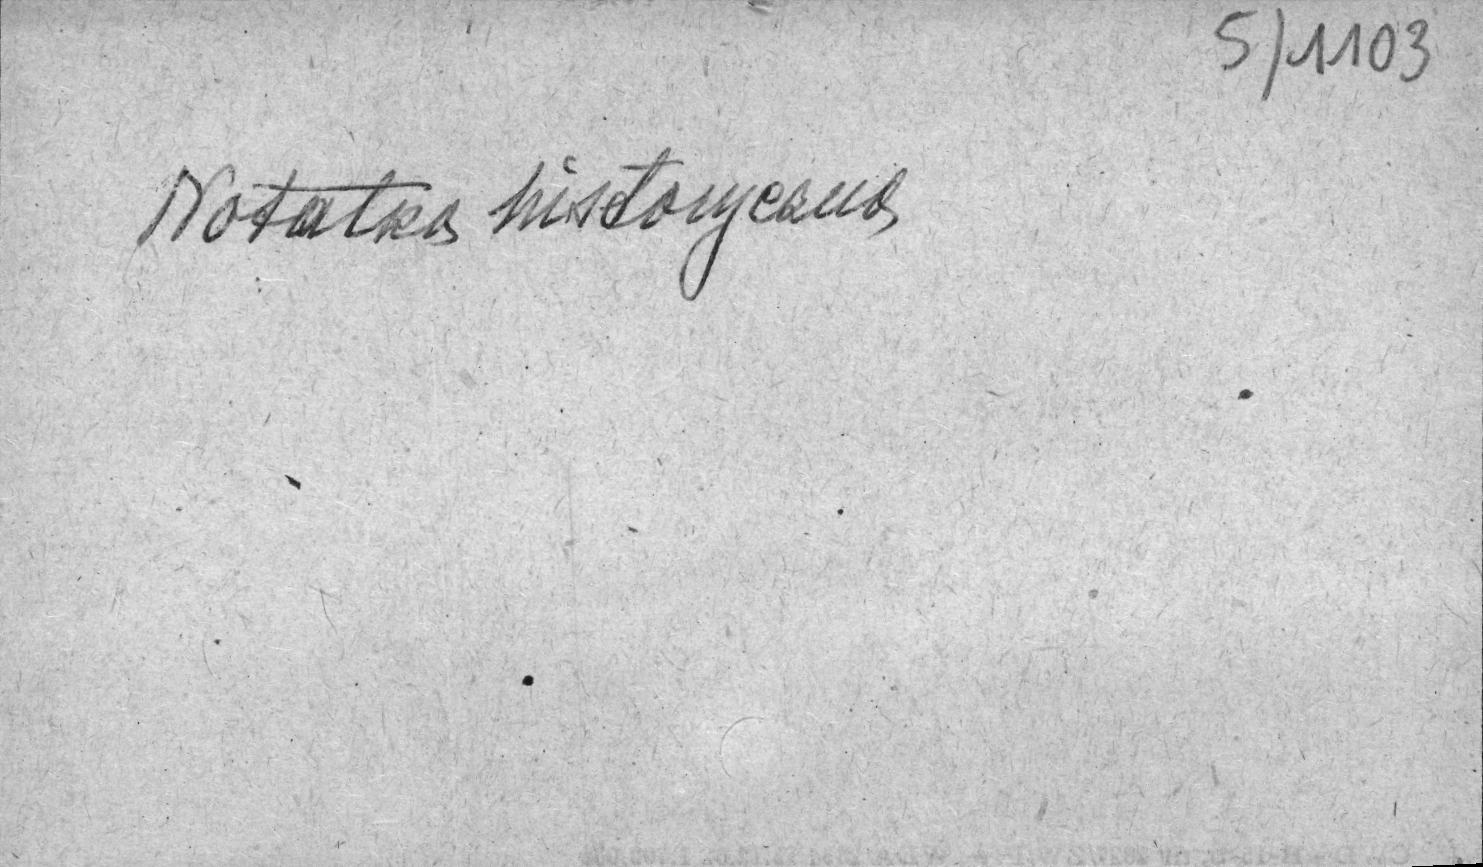 5/1103
Notatka historyczna